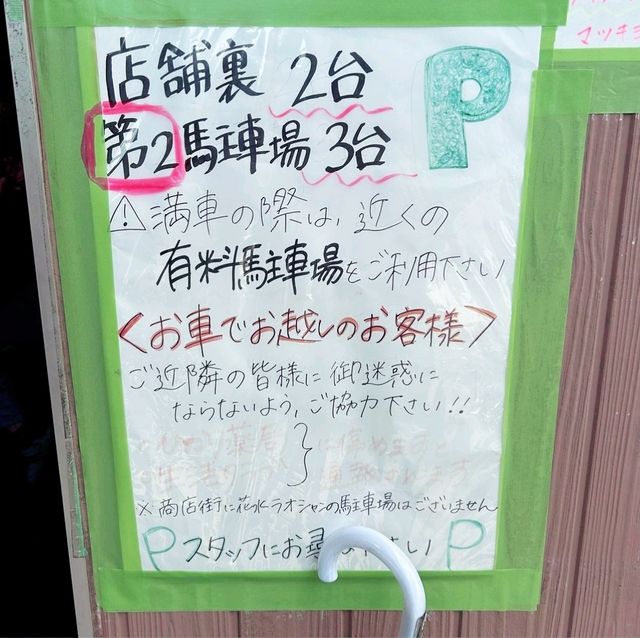 店舗裏 2台 P
第2駐車場 3台
⚠満車の際は、近くの
有料駐車場をご利用下さい
〈お車でお越しのお客様〉
ご近隣の皆様に御迷惑に
ならないよう、ご協力下さい!!
※商店街に花水ラオシャンの駐車場はございません
P スタッフにお尋 さい P
マツキヨ